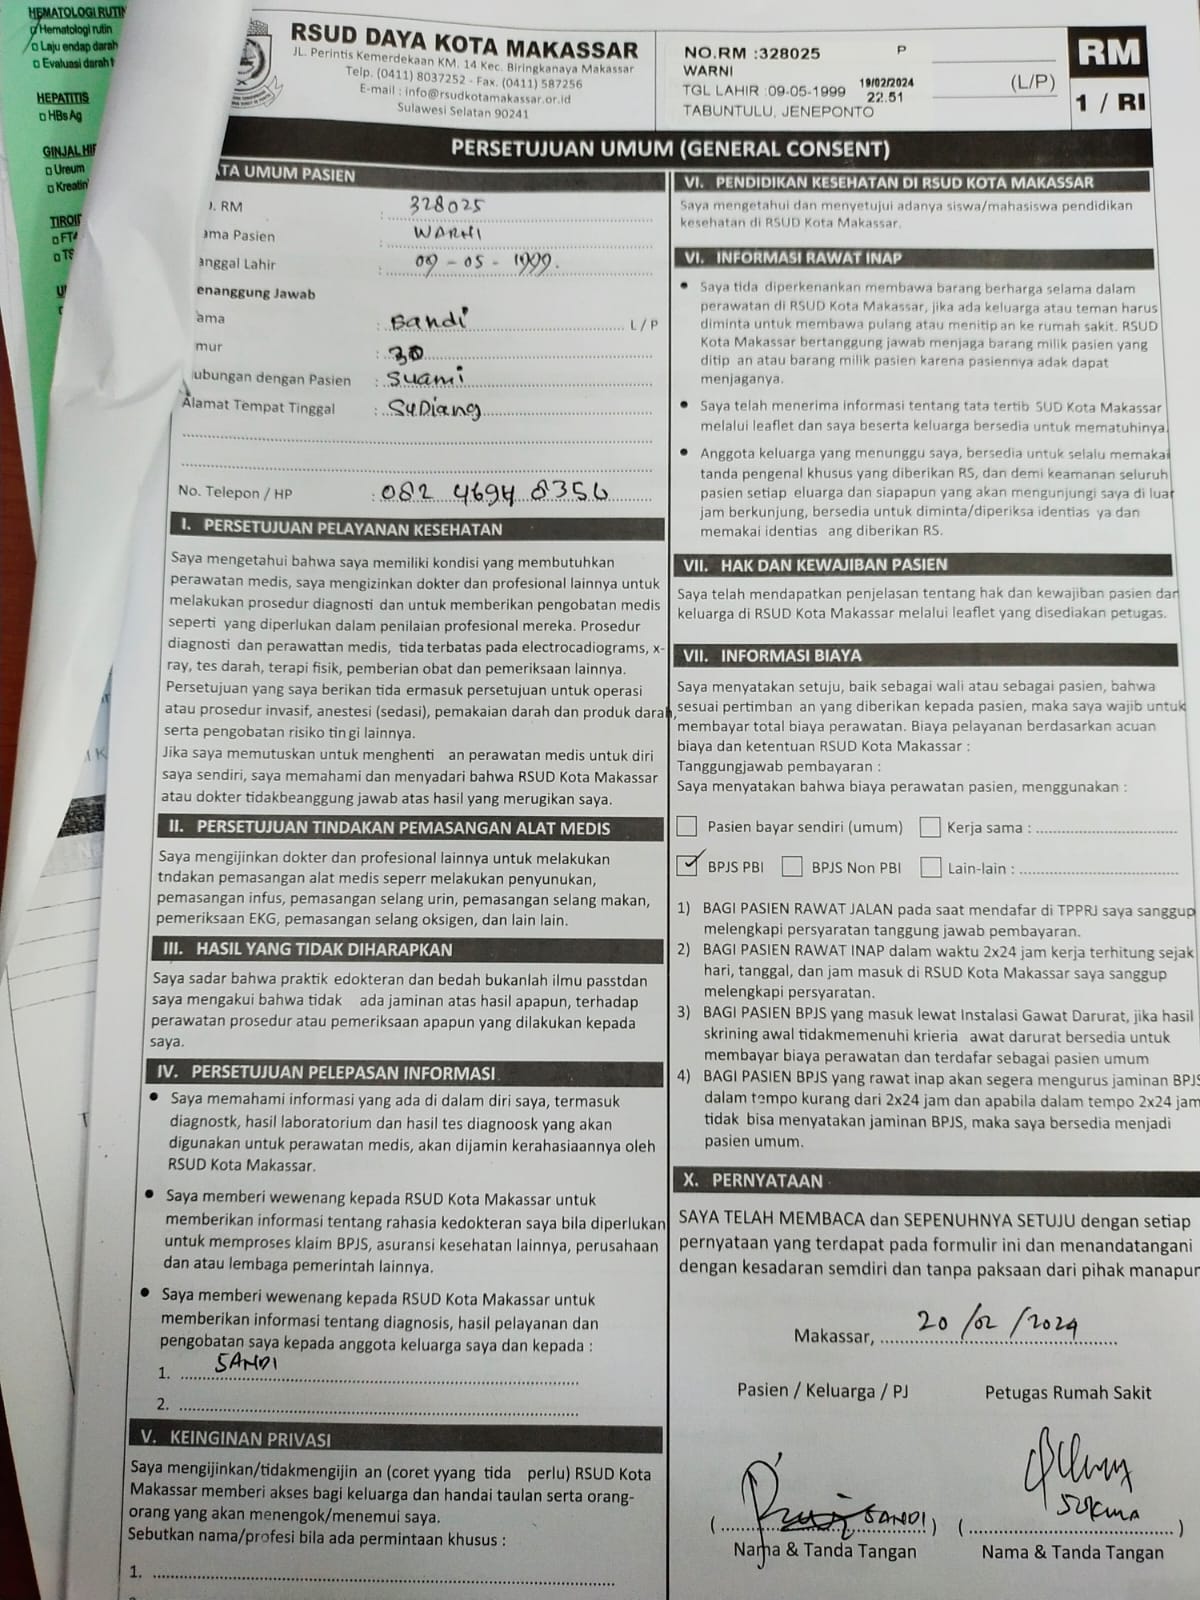 HEMATOLOGI RUTIN
Hematologi rutin
Laju endap darah
Evaluasi darah t
HEPATITIS
HBs Ag
GINJAL HIP
Ureum
Kreatin
TIROID
FT4
RSUD DAYA KOTA MAKASSAR
JL. Perintis Kemerdekaan KM. 14 Kec. Biringkanaya Makassar
Telp. (0411) 8037252 - Fax. (0411) 587256
E-mail : info@rsudkotamakassar.or.id
Sulawesi Selatan 90241
NO.RM :328025 P
WARNI
TGL LAHIR :09-05-1999 19/02/2024 22.51
TABUNTULU, JENEPONTO
(L/P)
RM
1 / RI
PERSETUJUAN UMUM (GENERAL CONSENT)
ATA UMUM PASIEN
. RM : 328025
ama Pasien : WARNI
anggal Lahir : 09 - 05 - 1999.
enanggung Jawab
ama : Sandi L / P
mur : 30
ubungan dengan Pasien : Suami
Alamat Tempat Tinggal : SuDiang
No. Telepon / HP : 082 4694 8356
I. PERSETUJUAN PELAYANAN KESEHATAN
Saya mengetahui bahwa saya memiliki kondisi yang membutuhkan
perawatan medis, saya mengizinkan dokter dan profesional lainnya untuk
melakukan prosedur diagnosti dan untuk memberikan pengobatan medis
seperti yang diperlukan dalam penilaian profesional mereka. Prosedur
diagnosti dan perawattan medis, tida terbatas pada electrocadiograms, x-
ray, tes darah, terapi fisik, pemberian obat dan pemeriksaan lainnya.
Persetujuan yang saya berikan tida ermasuk persetujuan untuk operasi
atau prosedur invasif, anestesi (sedasi), pemakaian darah dan produk darah,
serta pengobatan risiko tin gi lainnya.
Jika saya memutuskan untuk menghenti an perawatan medis untuk diri
saya sendiri, saya memahami dan menyadari bahwa RSUD Kota Makassar
atau dokter tidakbeanggung jawab atas hasil yang merugikan saya.
II. PERSETUJUAN TINDAKAN PEMASANGAN ALAT MEDIS
Saya mengijinkan dokter dan profesional lainnya untuk melakukan
tndakan pemasangan alat medis seperr melakukan penyunukan,
pemasangan infus, pemasangan selang urin, pemasangan selang makan,
pemeriksaan EKG, pemasangan selang oksigen, dan lain lain.
III. HASIL YANG TIDAK DIHARAPKAN
Saya sadar bahwa praktik edokteran dan bedah bukanlah ilmu passtdan
saya mengakui bahwa tidak ada jaminan atas hasil apapun, terhadap
perawatan prosedur atau pemeriksaan apapun yang dilakukan kepada
saya.
IV. PERSETUJUAN PELEPASAN INFORMASI
• Saya memahami informasi yang ada di dalam diri saya, termasuk
diagnostk, hasil laboratorium dan hasil tes diagnoosk yang akan
digunakan untuk perawatan medis, akan dijamin kerahasiaannya oleh
RSUD Kota Makassar.
• Saya memberi wewenang kepada RSUD Kota Makassar untuk
memberikan informasi tentang rahasia kedokteran saya bila diperlukan
untuk memproses klaim BPJS, asuransi kesehatan lainnya, perusahaan
dan atau lembaga pemerintah lainnya.
• Saya memberi wewenang kepada RSUD Kota Makassar untuk
memberikan informasi tentang diagnosis, hasil pelayanan dan
pengobatan saya kepada anggota keluarga saya dan kepada :
1. SANDI
2.
V. KEINGINAN PRIVASI
Saya mengijinkan/tidakmengijin an (coret yyang tida perlu) RSUD Kota
Makassar memberi akses bagi keluarga dan handai taulan serta orang-
orang yang akan menengok/menemui saya.
Sebutkan nama/profesi bila ada permintaan khusus :
1.
VI. PENDIDIKAN KESEHATAN DI RSUD KOTA MAKASSAR
Saya mengetahui dan menyetujui adanya siswa/mahasiswa pendidikan
kesehatan di RSUD Kota Makassar.
VI. INFORMASI RAWAT INAP
• Saya tida diperkenankan membawa barang berharga selama dalam
perawatan di RSUD Kota Makassar, jika ada keluarga atau teman harus
diminta untuk membawa pulang atau menitip an ke rumah sakit. RSUD
Kota Makassar bertanggung jawab menjaga barang milik pasien yang
ditip an atau barang milik pasien karena pasiennya adak dapat
menjaganya.
• Saya telah menerima informasi tentang tata tertib SUD Kota Makassar
melalui leaflet dan saya beserta keluarga bersedia untuk mematuhinya.
• Anggota keluarga yang menunggu saya, bersedia untuk selalu memakai
tanda pengenal khusus yang diberikan RS, dan demi keamanan seluruh
pasien setiap eluarga dan siapapun yang akan mengunjungi saya di luar
jam berkunjung, bersedia untuk diminta/diperiksa identias ya dan
memakai identias ang diberikan RS.
VII. HAK DAN KEWAJIBAN PASIEN
Saya telah mendapatkan penjelasan tentang hak dan kewajiban pasien dan
keluarga di RSUD Kota Makassar melalui leaflet yang disediakan petugas.
VII. INFORMASI BIAYA
Saya menyatakan setuju, baik sebagai wali atau sebagai pasien, bahwa
sesuai pertimban an yang diberikan kepada pasien, maka saya wajib untuk
membayar total biaya perawatan. Biaya pelayanan berdasarkan acuan
biaya dan ketentuan RSUD Kota Makassar :
Tanggungjawab pembayaran :
Saya menyatakan bahwa biaya perawatan pasien, menggunakan :
Pasien bayar sendiri (umum) Kerja sama :
✓ BPJS PBI BPJS Non PBI Lain-lain :
1) BAGI PASIEN RAWAT JALAN pada saat mendafar di TPPRJ saya sanggup
melengkapi persyaratan tanggung jawab pembayaran.
2) BAGI PASIEN RAWAT INAP dalam waktu 2x24 jam kerja terhitung sejak
hari, tanggal, dan jam masuk di RSUD Kota Makassar saya sanggup
melengkapi persyaratan.
3) BAGI PASIEN BPJS yang masuk lewat Instalasi Gawat Darurat, jika hasil
skrining awal tidakmemenuhi krieria awat darurat bersedia untuk
membayar biaya perawatan dan terdafar sebagai pasien umum
4) BAGI PASIEN BPJS yang rawat inap akan segera mengurus jaminan BPJS
dalam tempo kurang dari 2x24 jam dan apabila dalam tempo 2x24 jam
tidak bisa menyatakan jaminan BPJS, maka saya bersedia menjadi
pasien umum.
X. PERNYATAAN
SAYA TELAH MEMBACA dan SEPENUHNYA SETUJU dengan setiap
pernyataan yang terdapat pada formulir ini dan menandatangani
dengan kesadaran semdiri dan tanpa paksaan dari pihak manapun
Makassar, 20 /02 /2024
Pasien / Keluarga / PJ Petugas Rumah Sakit
(SANDI) (SUKMA)
Nama & Tanda Tangan Nama & Tanda Tangan